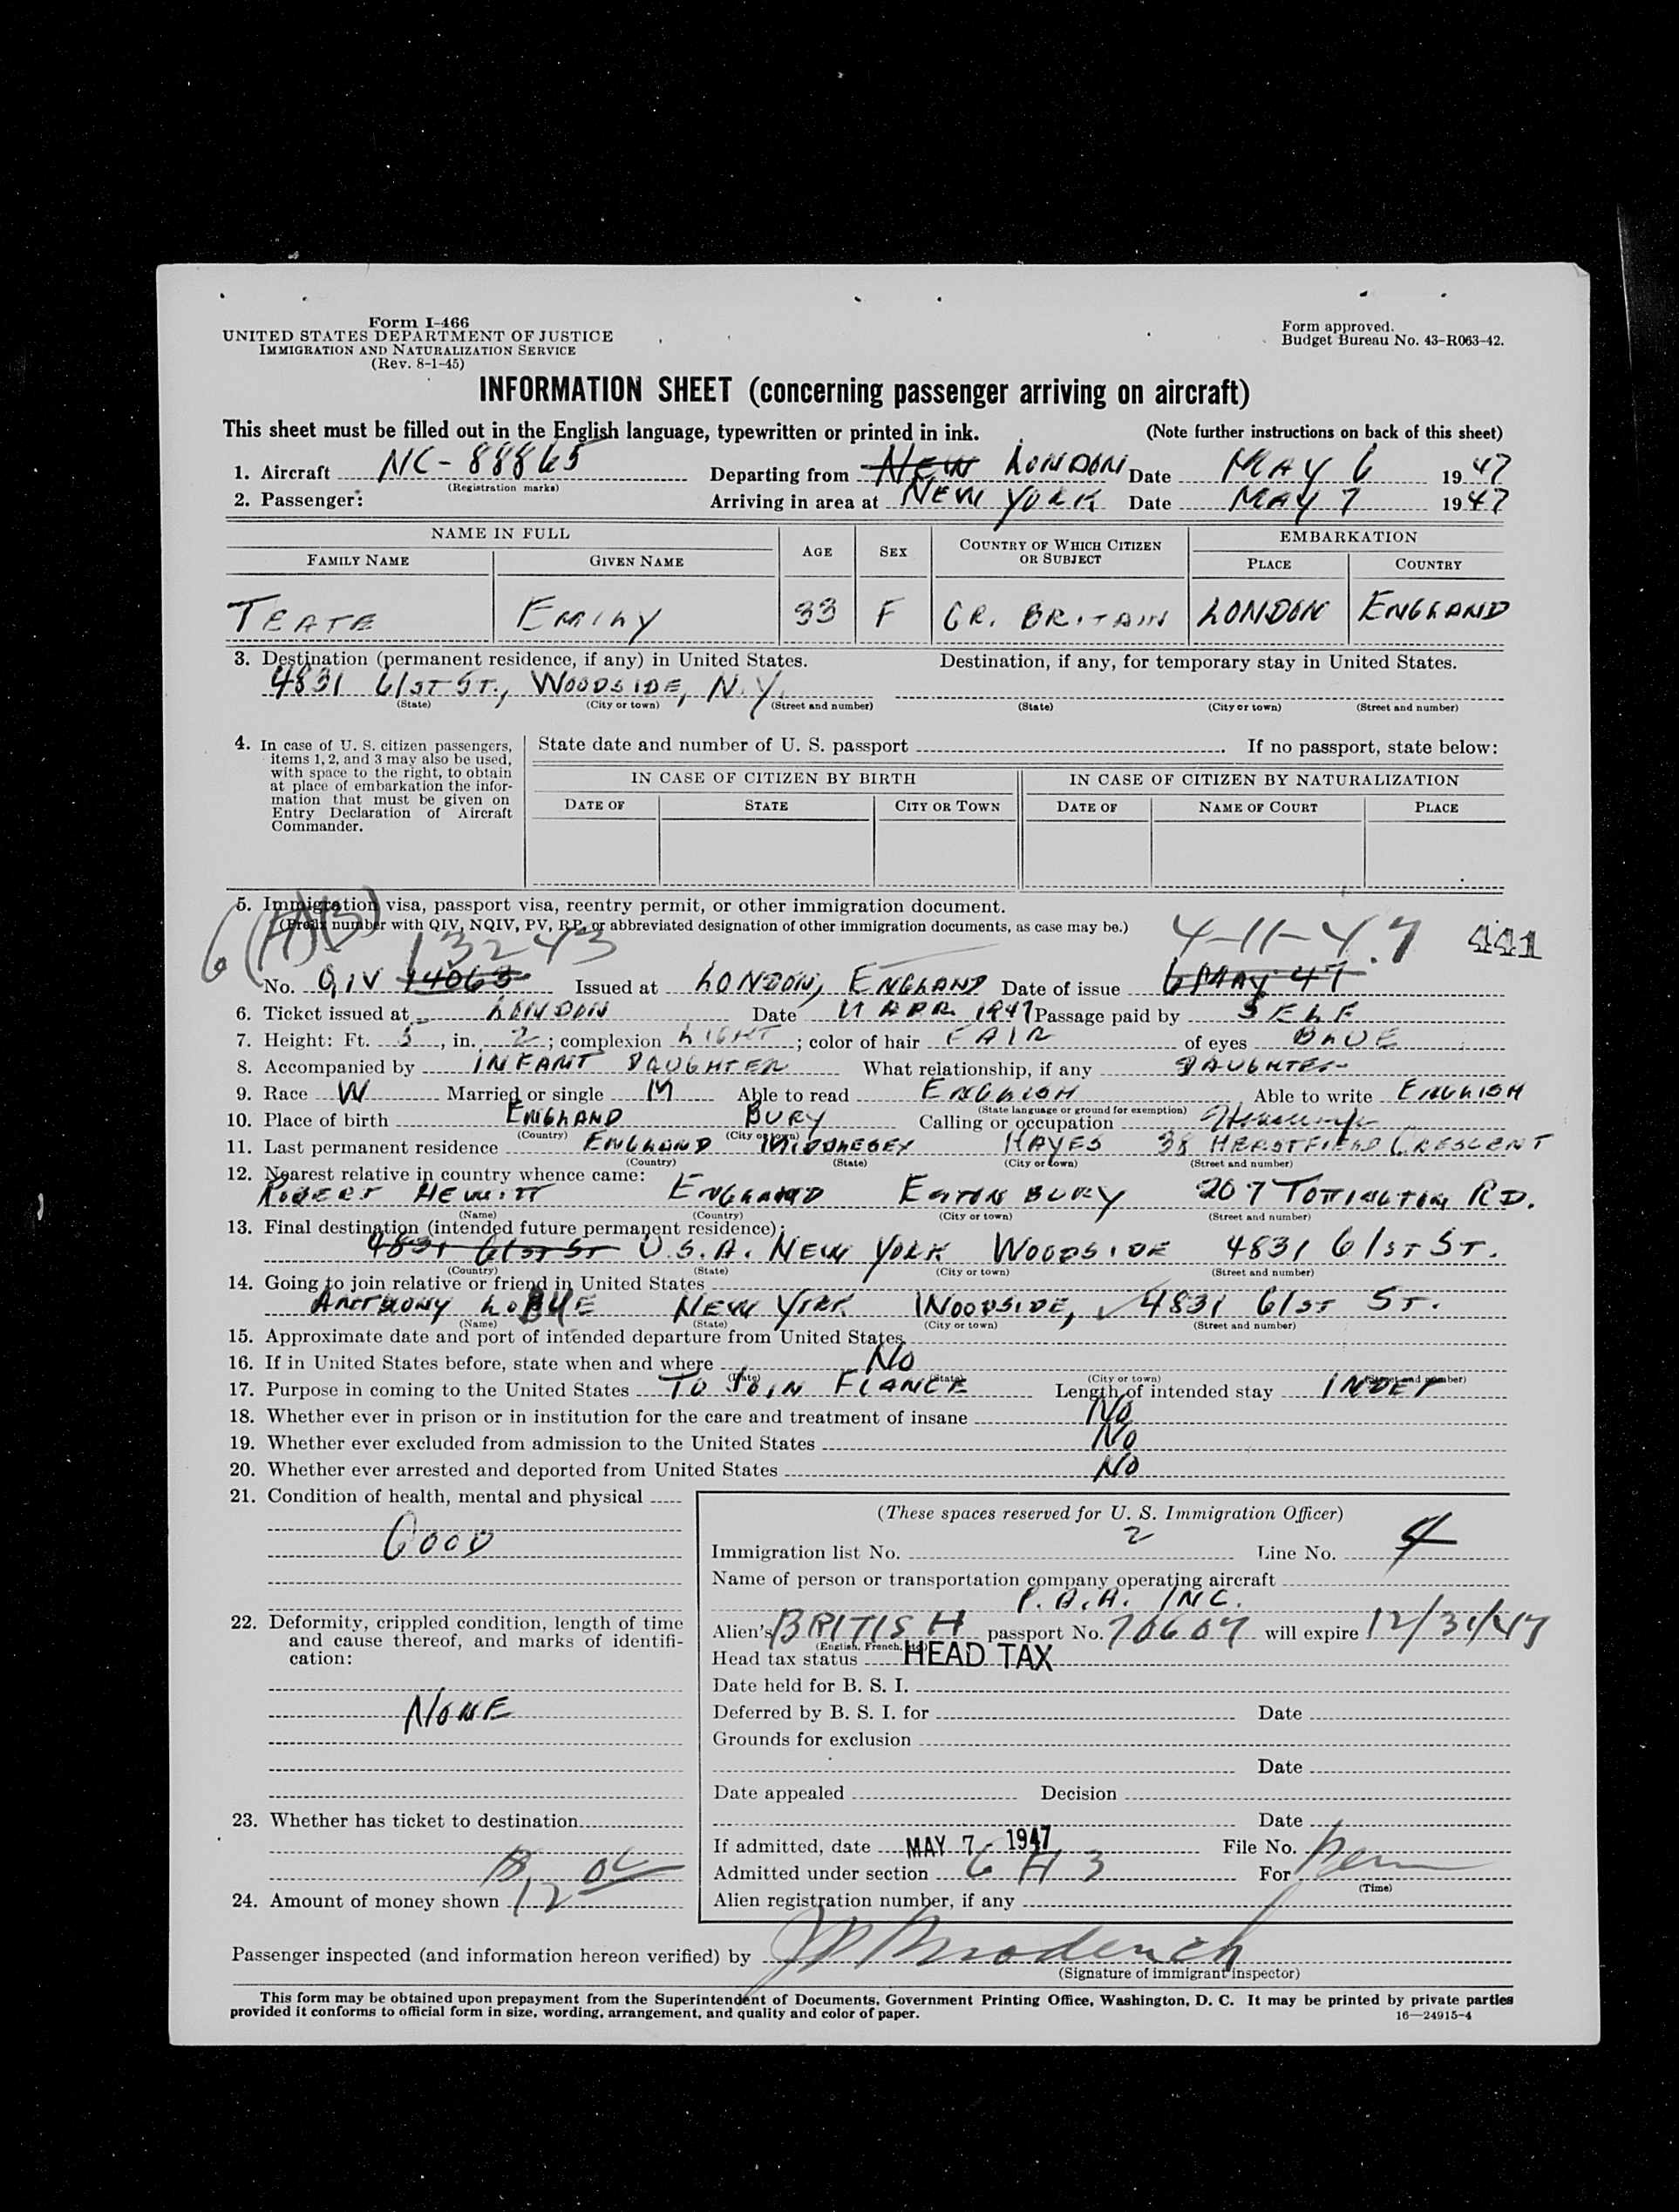 Form I-466
UNITED STATES DEPARTMENT OF JUSTICE
IMMIGRATION AND NATURALIZATION SERVICE
(Rev. 8-1-45)
Form approved.
Budget Bureau No. 43-R063-42.
INFORMATION SHEET (concerning passenger arriving on aircraft)
This sheet must be filled out in the English language, typewritten or printed in ink. (Note further instructions on back of this sheet)
1. Aircraft NC-88865 Departing from NEW LONDON Date MAY 6 1947
(Registration marks)
2. Passenger: Arriving in area at NEW YORK Date MAY 7 1947
NAME IN FULL AGE SEX COUNTRY OF WHICH CITIZEN OR SUBJECT EMBARKATION
FAMILY NAME GIVEN NAME PLACE COUNTRY
TEATE EMILY 33 F GR. BRITAIN LONDON ENGLAND
3. Destination (permanent residence, if any) in United States. Destination, if any, for temporary stay in United States.
4831 61ST ST., WOODSIDE, N.Y.
(State) (City or town) (Street and number) (State) (City or town) (Street and number)
4. In case of U. S. citizen passengers, items 1, 2, and 3 may also be used, with space to the right, to obtain at place of embarkation the information that must be given on Entry Declaration of Aircraft Commander.
State date and number of U. S. passport . If no passport, state below:
IN CASE OF CITIZEN BY BIRTH IN CASE OF CITIZEN BY NATURALIZATION
DATE OF STATE CITY OR TOWN DATE OF NAME OF COURT PLACE
5. Immigration visa, passport visa, reentry permit, or other immigration document.
(Prefix number with QIV, NQIV, PV, RP, or abbreviated designation of other immigration documents, as case may be.)
6(A)(3) 13243 4-11-47 441
No. QIV 14063 Issued at LONDON, ENGLAND Date of issue 6 MAY 47
6. Ticket issued at LONDON Date 11 APR 1947 Passage paid by SELF
7. Height: Ft. 5, in. 2; complexion LIGHT; color of hair FAIR of eyes BLUE
8. Accompanied by INFANT DAUGHTER What relationship, if any DAUGHTER
9. Race W Married or single M Able to read ENGLISH Able to write ENGLISH
(State language or ground for exemption)
10. Place of birth ENGLAND BURY Calling or occupation
(Country) (City or town)
11. Last permanent residence ENGLAND MIDDLESEX HAYES 38 HERSTFIELD CRESCENT
(Country) (State) (City or town) (Street and number)
12. Nearest relative in country whence came:
ROBERT HEWITT ENGLAND ELTON BURY 207 TOTTINGTON RD.
(Name) (Country) (City or town) (Street and number)
13. Final destination (intended future permanent residence):
4831 61ST ST U.S.A. NEW YORK WOODSIDE 4831 61ST ST.
(Country) (State) (City or town) (Street and number)
14. Going to join relative or friend in United States
ANTHONY LOBUE NEW YORK WOODSIDE, 4831 61ST ST.
(Name) (State) (City or town) (Street and number)
15. Approximate date and port of intended departure from United States
16. If in United States before, state when and where NO
(Date) (State) (City or town) (Street and number)
17. Purpose in coming to the United States TO JOIN FIANCE Length of intended stay INDEF
18. Whether ever in prison or in institution for the care and treatment of insane NO
19. Whether ever excluded from admission to the United States NO
20. Whether ever arrested and deported from United States NO
21. Condition of health, mental and physical
GOOD
22. Deformity, crippled condition, length of time and cause thereof, and marks of identification:
NONE
23. Whether has ticket to destination
24. Amount of money shown 12
(These spaces reserved for U. S. Immigration Officer)
Immigration list No. 2 Line No. 4
Name of person or transportation company operating aircraft
P.A.A. INC.
Alien's BRITISH passport No. 70607 will expire 12/31/47
(English, French, etc.)
Head tax status HEAD TAX
Date held for B. S. I.
Deferred by B. S. I. for Date
Grounds for exclusion
Date
Date appealed Decision
Date
If admitted, date MAY 7 - 1947 File No.
Admitted under section 6 A 3 For Perm
(Time)
Alien registration number, if any
Passenger inspected (and information hereon verified) by
(Signature of immigrant inspector)
This form may be obtained upon prepayment from the Superintendent of Documents, Government Printing Office, Washington, D. C. It may be printed by private parties
provided it conforms to official form in size, wording, arrangement, and quality and color of paper. 16—24915-4